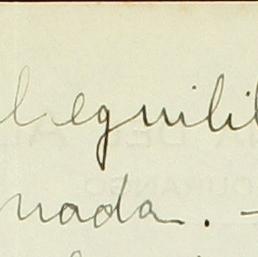 l equili
nada. -